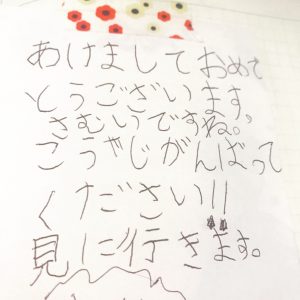 あけまして おめで
とうございます。
さむいですね。
こうやじがんばって
ください!!
見に行きます。